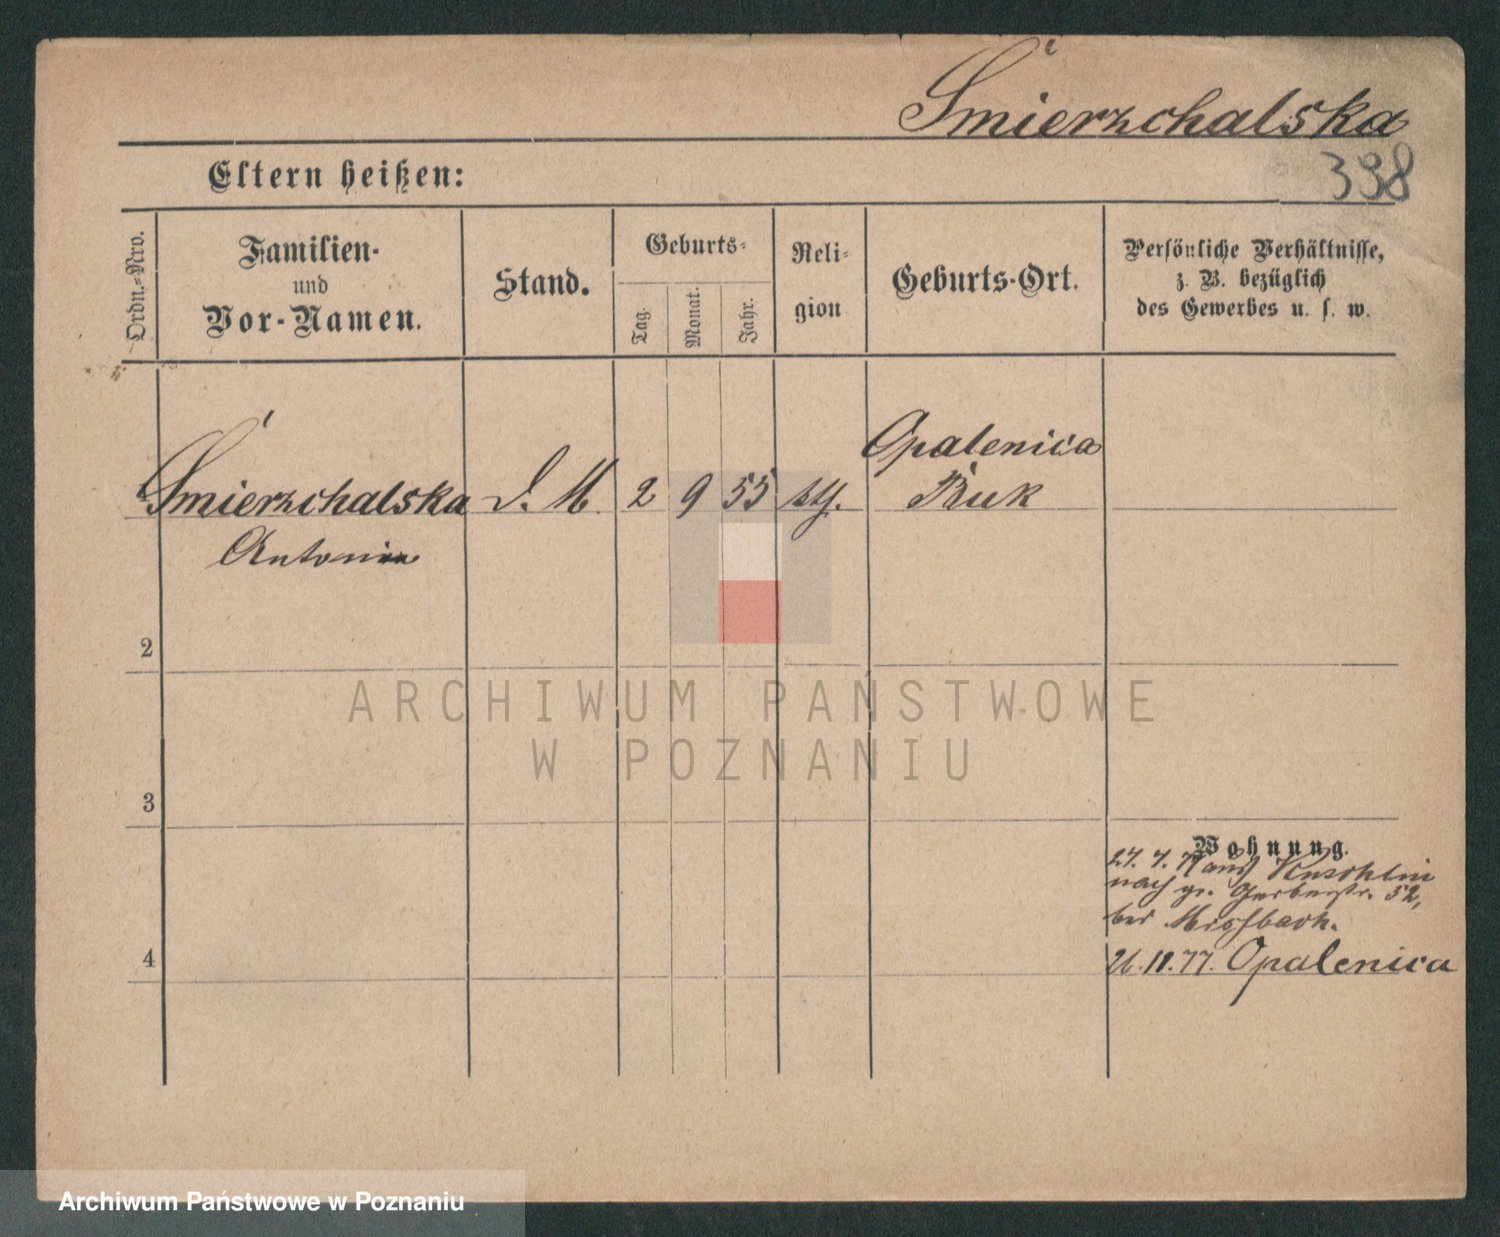 Śmierzchalska
398
Eltern heißen:
Ordn.-Nro.
Familien-
und
Vor-Namen.
Stand.
Geburts-
Tag.
Monat.
Jahr.
Reli-
gion
Geburts-Ort.
Persönliche Verhältnisse,
z. B. bezüglich
des Gewerbes u. s. w.
Śmierzchalska D. M. 2 9 55 kth. Opalenica
Buk
Antonina
2
ARCHIWUM PAŃSTWOWE
W POZNANIU
3
Wohnung.
27. 7. 77 aus
nach gr. Gerberstr. 52,
bei
26. 11. 77. Opalenica
4
Archiwum Państwowe w Poznaniu